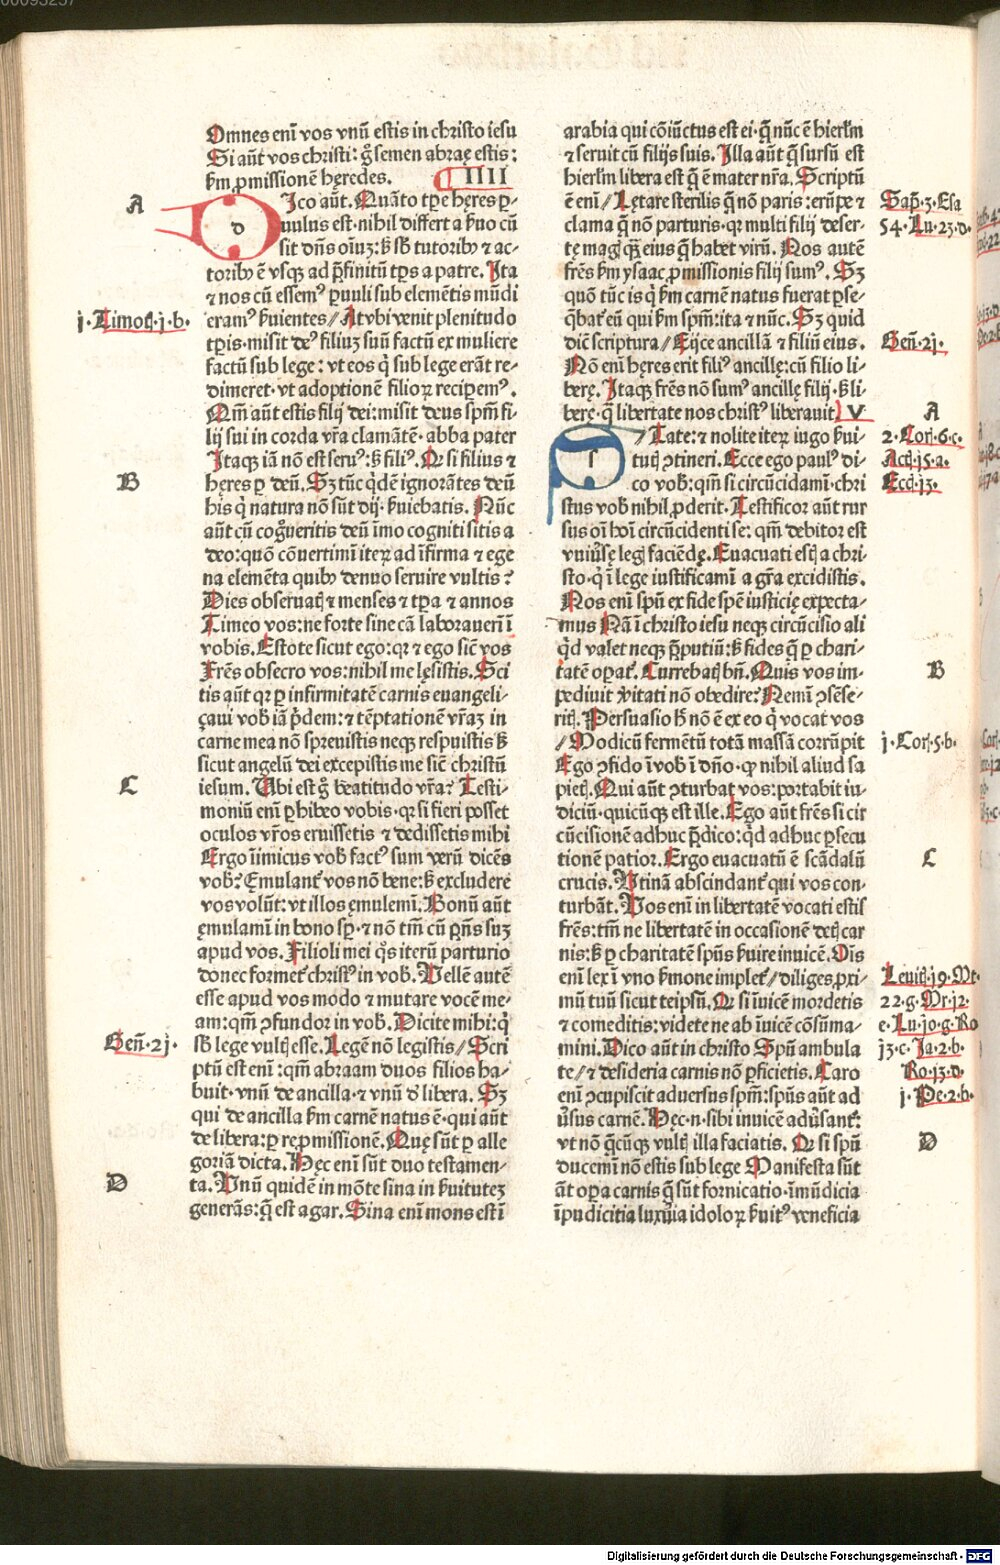 Omnes enī vos vnū estis in christo iesu
Si aūt vos christi: g̃ semen abrae estis:
ẜm ꝓmissionē hęredes. IIII
A
dIco aūt. Quāto tꝑe hęres p-
uulus est. nihil differt a ẜuo cū
sit dn̄s oīuʒ: ẜꝫ sb̄ tutoribꝰ ⁊ ac-
toribꝰ ē vsqꝫ ad p̄finitū tꝑs a patre. Ita
⁊ nos cū essemꝰ ꝑuuli sub elemētis mūdi
j. Timotꝭ. j. b.
eramꝰ ẜuientes/ At vbi venit plenitudo
tꝑis. misit deꝰ filiuʒ suū factū ex muliere
factū sub lege: vt eos q̇ sub lege erāt re-
dimeret. vt adoptionē filioꝝ reciperemꝰ.
Qm̄ aūt estis filij dei: misit deus spm̄ fi-
lij sui in corda vr̄a clamātē. abba pater
Itaqꝫ iā nō est seruꝰ: ẜꝫ filiꝰ. Qꝛ si filius ⁊
B
hęres ꝑ deū. Sʒ tūc q̇dē ignorātes deū
his q̇ natura nō sūt dij. ẜuiebatis. Nūc
aūt cū cog̃ueritis deū īmo cogniti sitis a
deo: quō cōuertimī iteꝝ ad īfirma ⁊ ege
na elemēta quibꝰ denuo seruire vultis?
Dies obseruatꝭ ⁊ menses ⁊ tꝑa ⁊ annos
Timeo vos: ne forte sine cā laborauerī ī
vobis. Estote sicut ego: qꝛ ⁊ ego sic̄ vos
Fr̄es obsecro vos: nihil me lęsistis. Sci
tis aūt qꝛ ꝑ infirmitatē carnis euangeli-
çaui vob̄ iā p̄dem: ⁊ tēptationē vr̄aʒ in
carne mea nō spreuistis neqꝫ respuistis ẜꝫ
sicut angelū dei excepistis me sic̄ christū
C
iesum. Ubi est g̃ beatitudo vr̄a? Testi-
moniū enī ꝑhibeo vobis. qꝛ si fieri posset
oculos vr̄os eruissetis ⁊ dedissetis mihi
Ergo inimicus vob̄ factꝰ sum verū dicēs
vob̄? Ęmulant᷑ vos nō bene: ẜꝫ excludere
vos volūt: vt illos ęmulemī. Bonū aūt
ęmulamī in bono sꝑ. ⁊ nō tm̄ cū p̄ns suʒ
apud vos. Filioli mei q̇s iterū parturio
donec formet᷑ christꝰ in vob̄. Vellē autē
esse apud vos modo ⁊ mutare vocē me-
am: qm̄ ꝯfundor in vob̄. Dicite mihi: q̇
Gen̄. 2j.
sb̄ lege vultꝭ esse. Legē nō legistis/ Scri
ptū est enī: qm̄ abraam duos filios ha-
buit. vnū de ancilla. ⁊ vnū d̄ libera. Sʒ
qui de ancilla ẜm carnē natus ē. qui aūt
de libera: ꝑ reꝓmissionē. Quę sūt ꝑ alle
goriā dicta. Hęc enī sūt duo testamen-
D
ta. Vnū quidē in mōte sina in ẜuituteʒ
generās: q̄ est agar. Sina enī mons est ī
arabia qui cōiūctus est ei. q̄ nūc ē hierlm̄
⁊ seruit cū filijs suis. Illa aūt q̄ sursū est
hierlm̄ libera est q̄ ē mater nr̄a. Scriptū
Sap̄. 3. Esa
ē enī/ Lętare sterilis q̄ nō paris: erūpe ⁊
54. Lu. 23. d.
clama q̄ nō parturis. qꝛ multi filij deser-
te mag̃ qꝫ eius q̄ habet virū. Nos autē
fr̄es ẜm ysaac ꝓmissionis filij sumꝰ. Sʒ
quō tūc is q̇ ẜm carnē natus fuerat ꝑse-
q̄bat᷑ eū qui ẜm spm̄: ita ⁊ nūc. Sʒ quid
Gen̄. 2j.
dic̄ scriptura/ Eijce ancillā ⁊ filiū eius.
Nō enī hęres erit filiꝰ ancillę: cū filio li-
berę. Itaqꝫ fr̄es nō sumꝰ ancillę filij. ẜꝫ li-
berę. q̄ libertate nos christꝰ liberauit. V
A
sTate: ⁊ nolite iteꝝ iugo ẜui-
2. Corꝭ. 6. c.
tutꝭ ꝯtineri. Ecce ego paulꝰ di-
Actꝭ. 15. a.
co vob̄: qm̄ si circūcidami. chri
Eccꝭ. 13.
stus vob̄ nihil ꝓderit. Testificor aūt rur
sus oī hoī circūcidenti se: qm̄ debitor est
vniūse legꝭ faciēdę. Euacuati estꝭ a chri-
sto. q̇ ī lege iustificamī a gr̄a excidistis.
Nos enī spū ex fide spē iusticię expecta-
mus Nā ī christo iesu neqꝫ circūcisio ali
q̇d valet neqꝫ p̄putiū: ẜꝫ fides q̄ ꝑ chari-
B
tatē oꝑat᷑. Currebatꝭ bn̄. Quis vos im-
pediuit v̄itati nō obedire? Nemī ꝯsēse-
ritꝭ. Persuasio h̄ nō ē ex eo q̇ vocat vos
j. Corꝭ. 5. b.
/Modicū fermētū totā massā corrūpit
Ego ꝯfido ī vob̄ ī dn̄o. ꝙ nihil aliud sa
pietꝭ. Qui aūt ꝯturbat vos: portabit iu-
diciū. quicūqꝫ est ille. Ego aūt fr̄es si cir
cūcisionē adhuc p̄dico: q̇d adhuc ꝑsecu
C
tionē patior. Ergo euacuatū ē scādalū
crucis. Utinā abscindant᷑ qui vos con-
turbāt. Vos enī in libertatē vocati estis
fr̄es: tm̄ ne libertatē in occasionē detꝭ car
nis: ẜꝫ ꝑ charitatē spūs ẜuire inuicē. Oīs
Leuitꝭ. 19. Mt.
enī lex ī vno ẜmone implet᷑/ diliges ꝓxi-
22. g. Mr. 12.
mū tuū sicut teipsū. Qꝛ si īuicē mordetis
e. Lu. 10. g. Ro
⁊ comeditis: videte ne ab īuicē cōsūma-
13. c. Ja. 2. b.
mini. Dico aūt in christo Spū ambula
Ro. 13. d.
te/ ⁊ desideria carnis nō ꝑficietis. Caro
j. Pe. 2. b.
enī ꝯcupiscit aduersus spm̄: spūs aūt ad
ūsus carnē. Hęc. n. sibi inuicē adūsant᷑:
D
vt nō q̄cūqꝫ vultꝭ illa faciatis. Qꝛ si spū
ducemī nō estis sub lege Manifesta sūt
āt oꝑa carnis q̄ sūt fornicatio. īmūdicia
īpudicitia luxuria idoloꝝ ẜuitꝰ veneficia
Digitalisierung gefördert durch die Deutsche Forschungsgemeinschaft - DFG